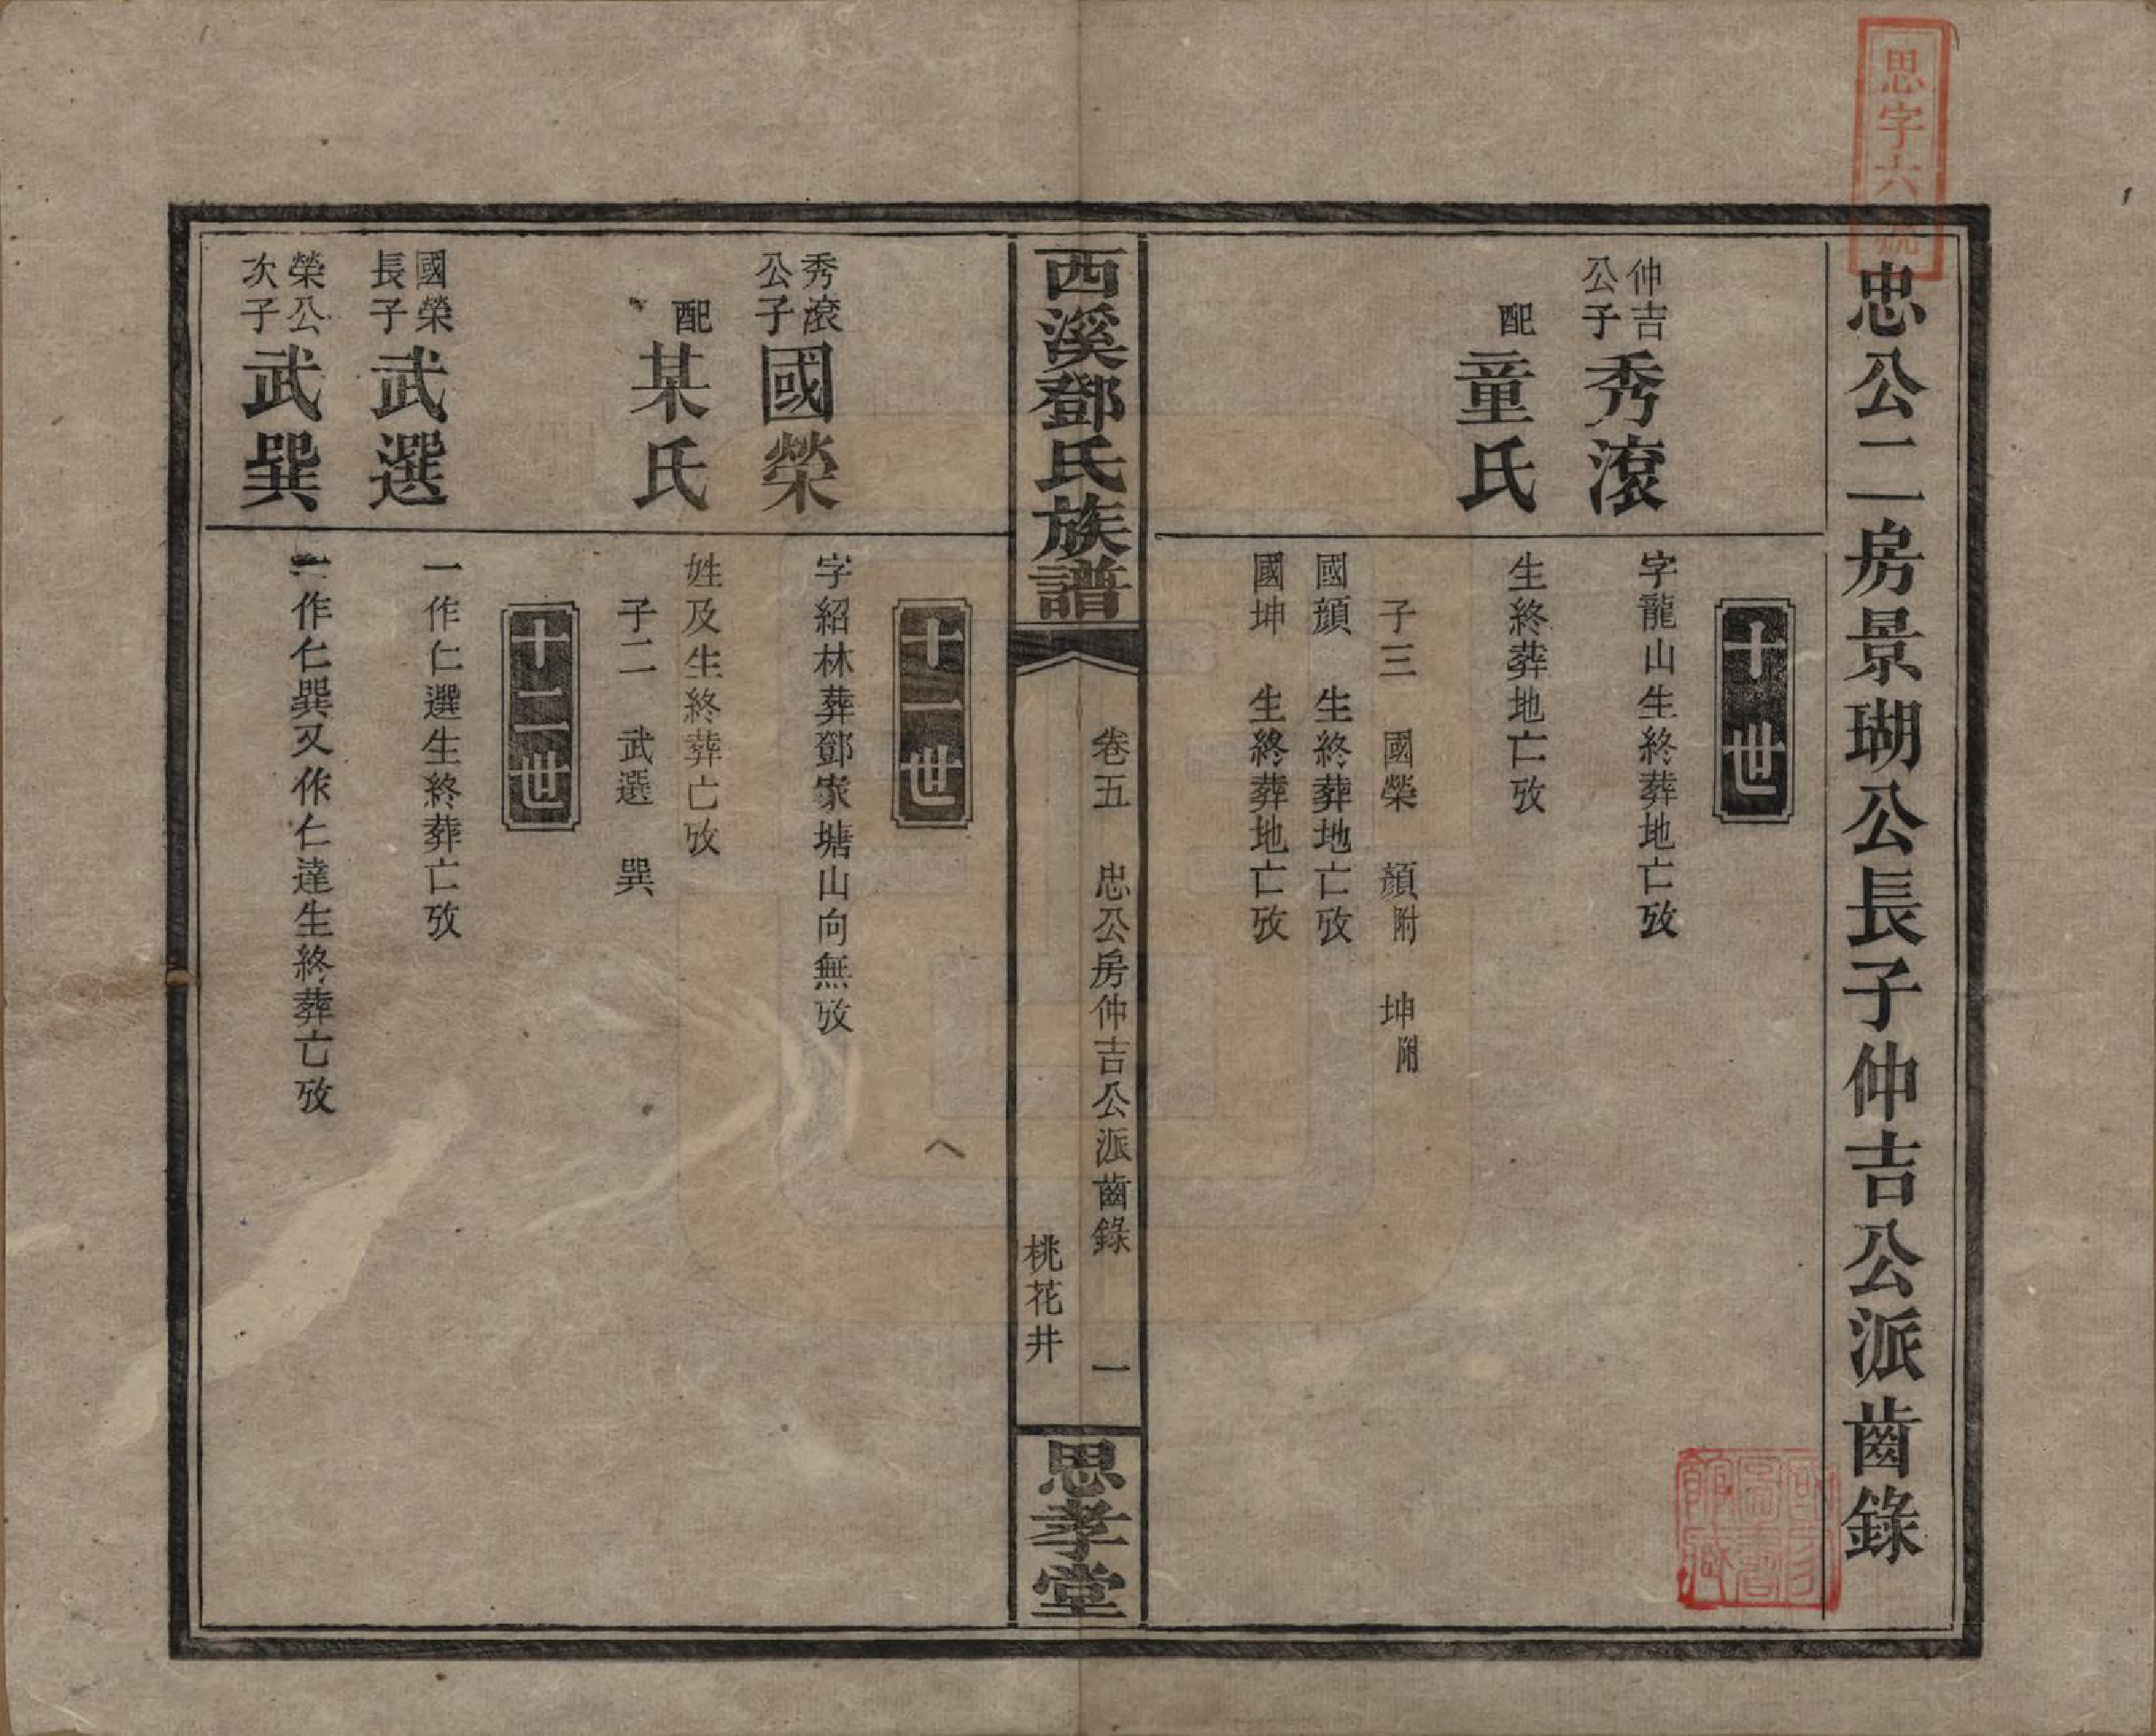 思字六號
忠公二房景瑚公長子仲吉公派齒錄
十世
仲吉公子秀滾
字龍山生終葬地亡攷
配童氏
生終葬地亡攷
子三 國榮 顏附 坤附
國顏 生終葬地亡攷
國坤 生終葬地亡攷
西溪鄧氏族譜
卷五 忠公房仲吉公派齒錄 一
桃花井
思孝堂
十一世
秀滾公子國榮
字紹林葬鄧家塘山向無攷
配某氏
姓及生終葬亡攷
子二 武選 巽
十二世
國榮長子武選
一作仁選生終葬亡攷
榮公次子武巽
一作仁巽又作仁達生終葬亡攷